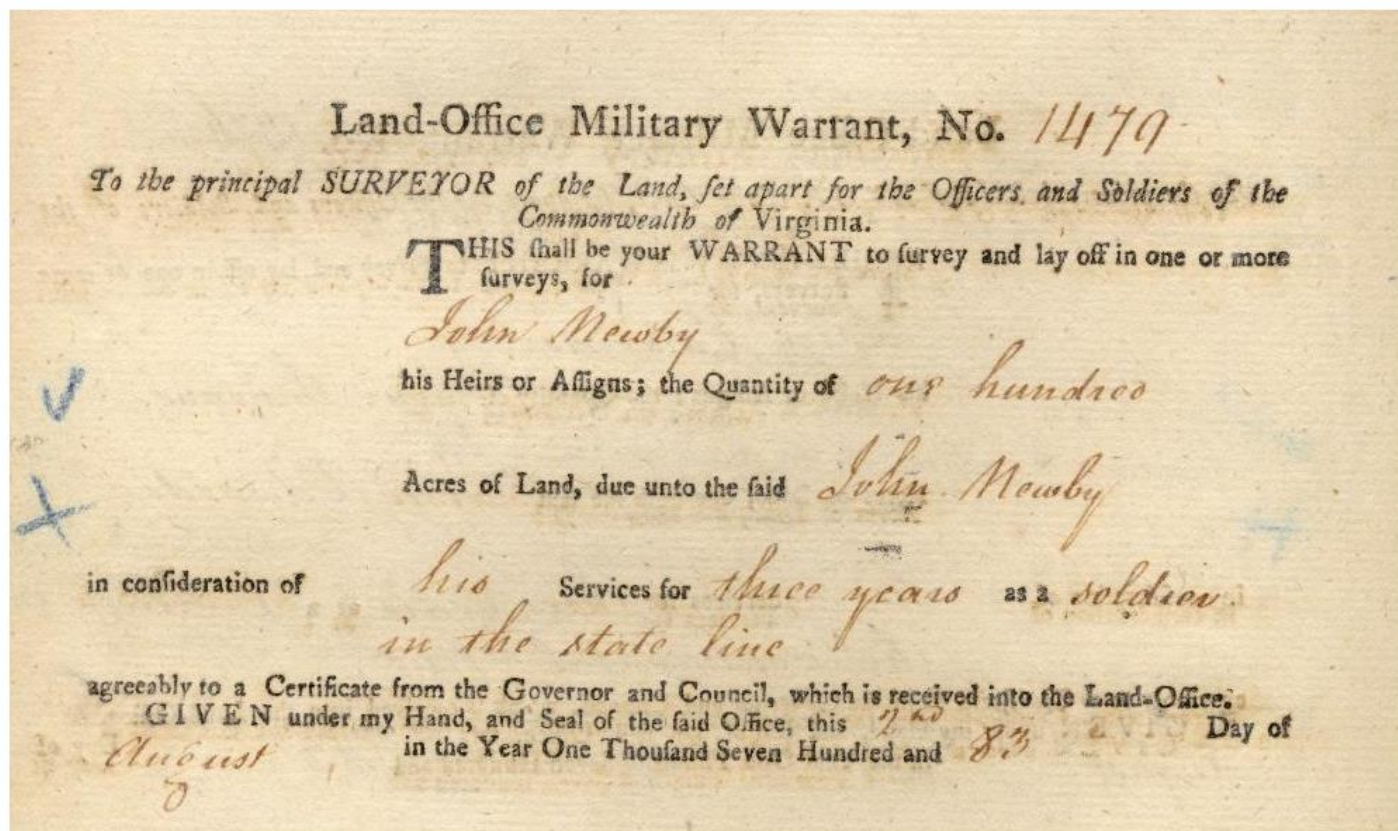 Land-Office Military Warrant, No. 1479
To the principal SURVEYOR of the Land, ſet apart for the Officers and Soldiers of the
Commonwealth of Virginia.
THIS ſhall be your WARRANT to ſurvey and lay off in one or more
ſurveys, for
John Newby
his Heirs or Aſſigns; the Quantity of one hundred
Acres of Land, due unto the ſaid John Newby
in conſideration of his Services for three years as a soldier
in the state line
agreeably to a Certificate from the Governor and Council, which is received into the Land-Office.
GIVEN under my Hand, and Seal of the ſaid Office, this 2nd Day of
August in the Year One Thouſand Seven Hundred and 83